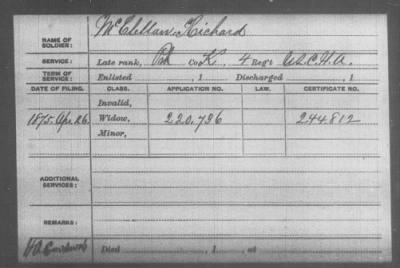 NAME OF SOLDIER: McClellan, Richard
SERVICE: Late rank, Pvt Co. K, 4 Reg't U.S.C.H.A.
TERM OF SERVICE: Enlisted , 1 Discharged , 1
DATE OF FILING. CLASS. APPLICATION NO. LAW. CERTIFICATE NO.
Invalid,
1875. Apr. 26. Widow, 220.796 244.812
Minor,
ADDITIONAL SERVICES:
REMARKS:
Died , 1 , at